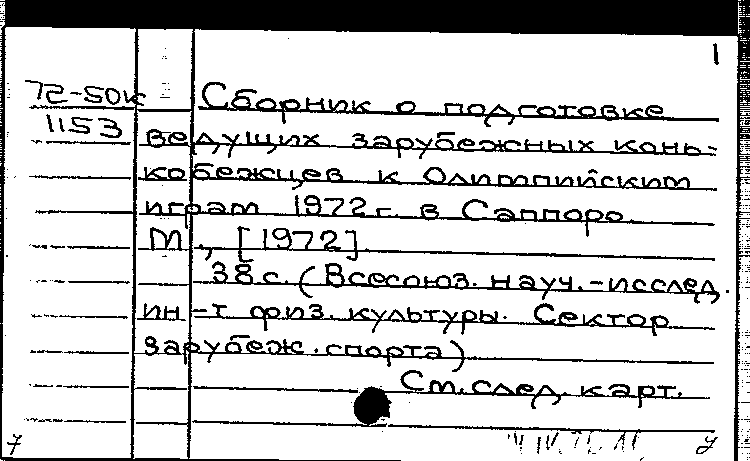 1
72-50к Сборник о подготовке
1153 ведущих зарубежных конь-
кобежцев к Олимпийским
играм 1972 г. в Саппоро.
М., [1972].
38 с. (Всесоюз. науч.-исслед.
ин-т физ. культуры. Сектор
зарубеж. спорта)
См. след. карт.
7 у